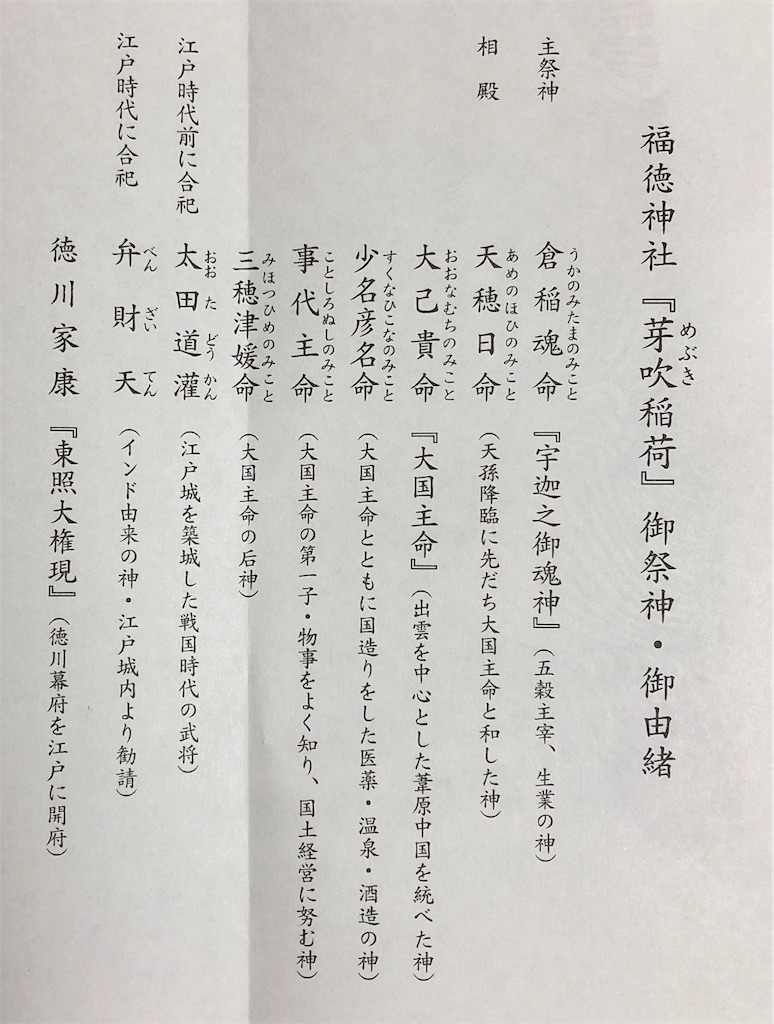 福徳神社『芽吹稲荷』御祭神・御由緒
めぶき
主祭神 倉稲魂命『宇迦之御魂神』(五穀主宰、生業の神)
うかのみたまのみこと
相殿 天穂日命(天孫降臨に先だち大国主命と和した神)
あめのほひのみこと
大己貴命『大国主命』(出雲を中心とした葦原中国を統べた神)
おおなむちのみこと
少名彦名命(大国主命とともに国造りをした医薬・温泉・酒造の神)
すくなひこなのみこと
事代主命(大国主命の第一子・物事をよく知り、国土経営に努む神)
ことしろぬしのみこと
三穂津媛命(大国主命の后神)
みほつひめのみこと
江戸時代前に合祀 太田道灌(江戸城を築城した戦国時代の武将)
おおたどうかん
江戸時代に合祀 弁財天(インド由来の神・江戸城内より勧請)
べんざいてん
徳川家康『東照大権現』(徳川幕府を江戸に開府)